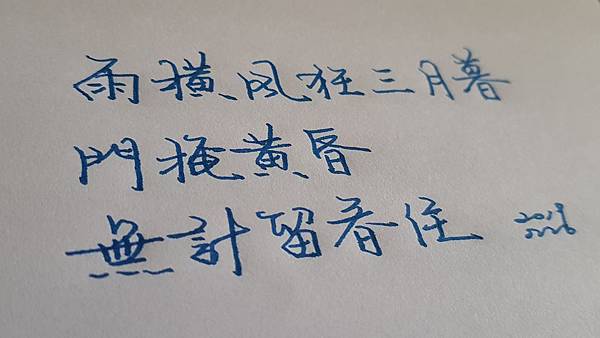 雨橫風狂三月暮
門掩黃昏
無計留春住 2019